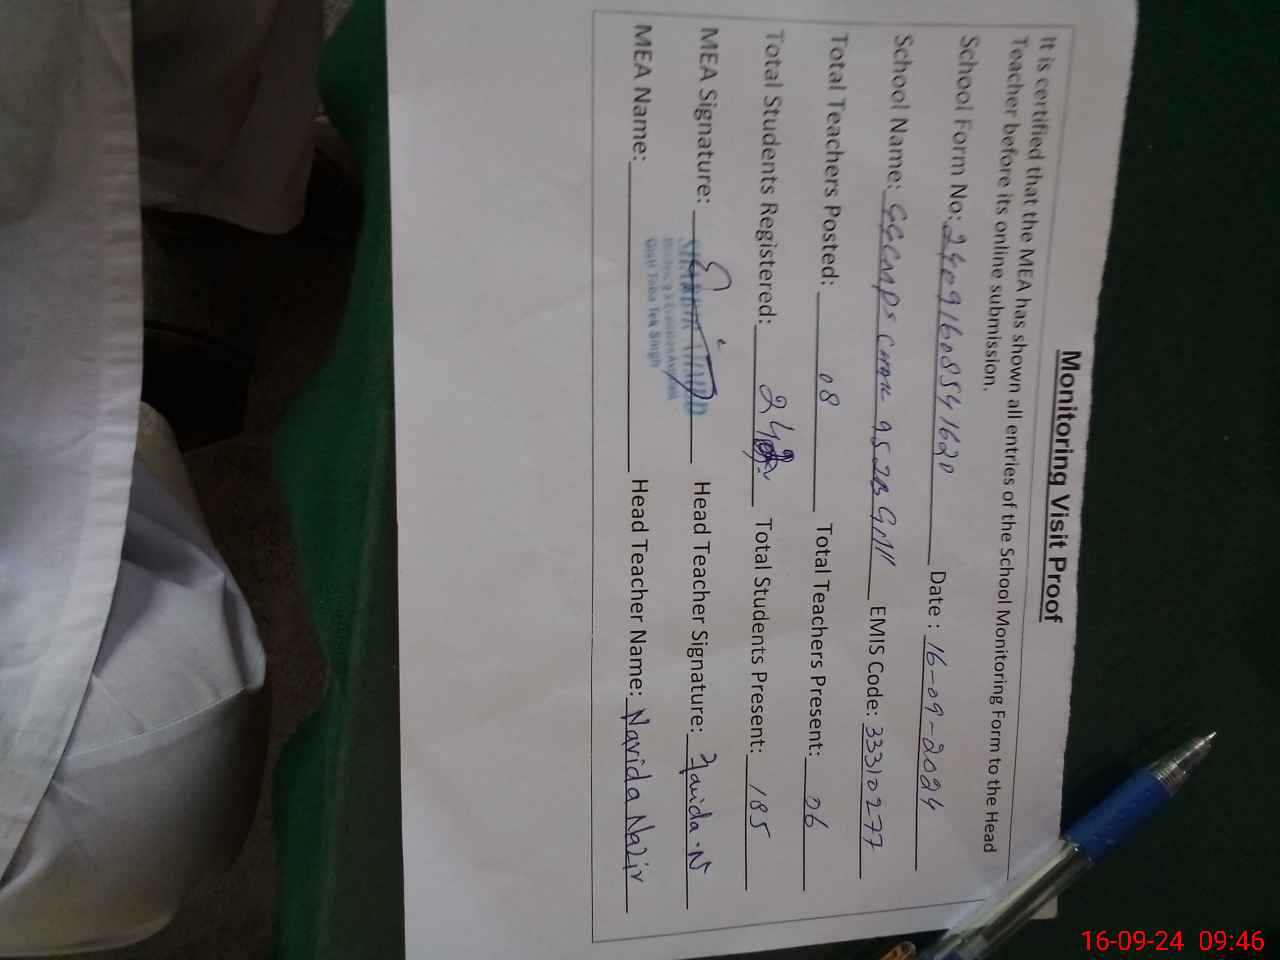 Monitoring Visit Proof
It is certified that the MEA has shown all entries of the School Monitoring Form to the Head
Teacher before its online submission.
School Form No: 24091608541620 Date : 16-09-2024
School Name: GGCMPS CHAK 95 2B GM EMIS Code: 33310277
Total Teachers Posted: 08 Total Teachers Present: 06
Total Students Registered: 24 Total Students Present: 185
MEA Signature: Head Teacher Signature: Navida .N
MEA Name: Head Teacher Name: Navida Nazir
Monitoring & Evaluation Assistant
Distt Toba Tek Singh
16-09-24 09:46